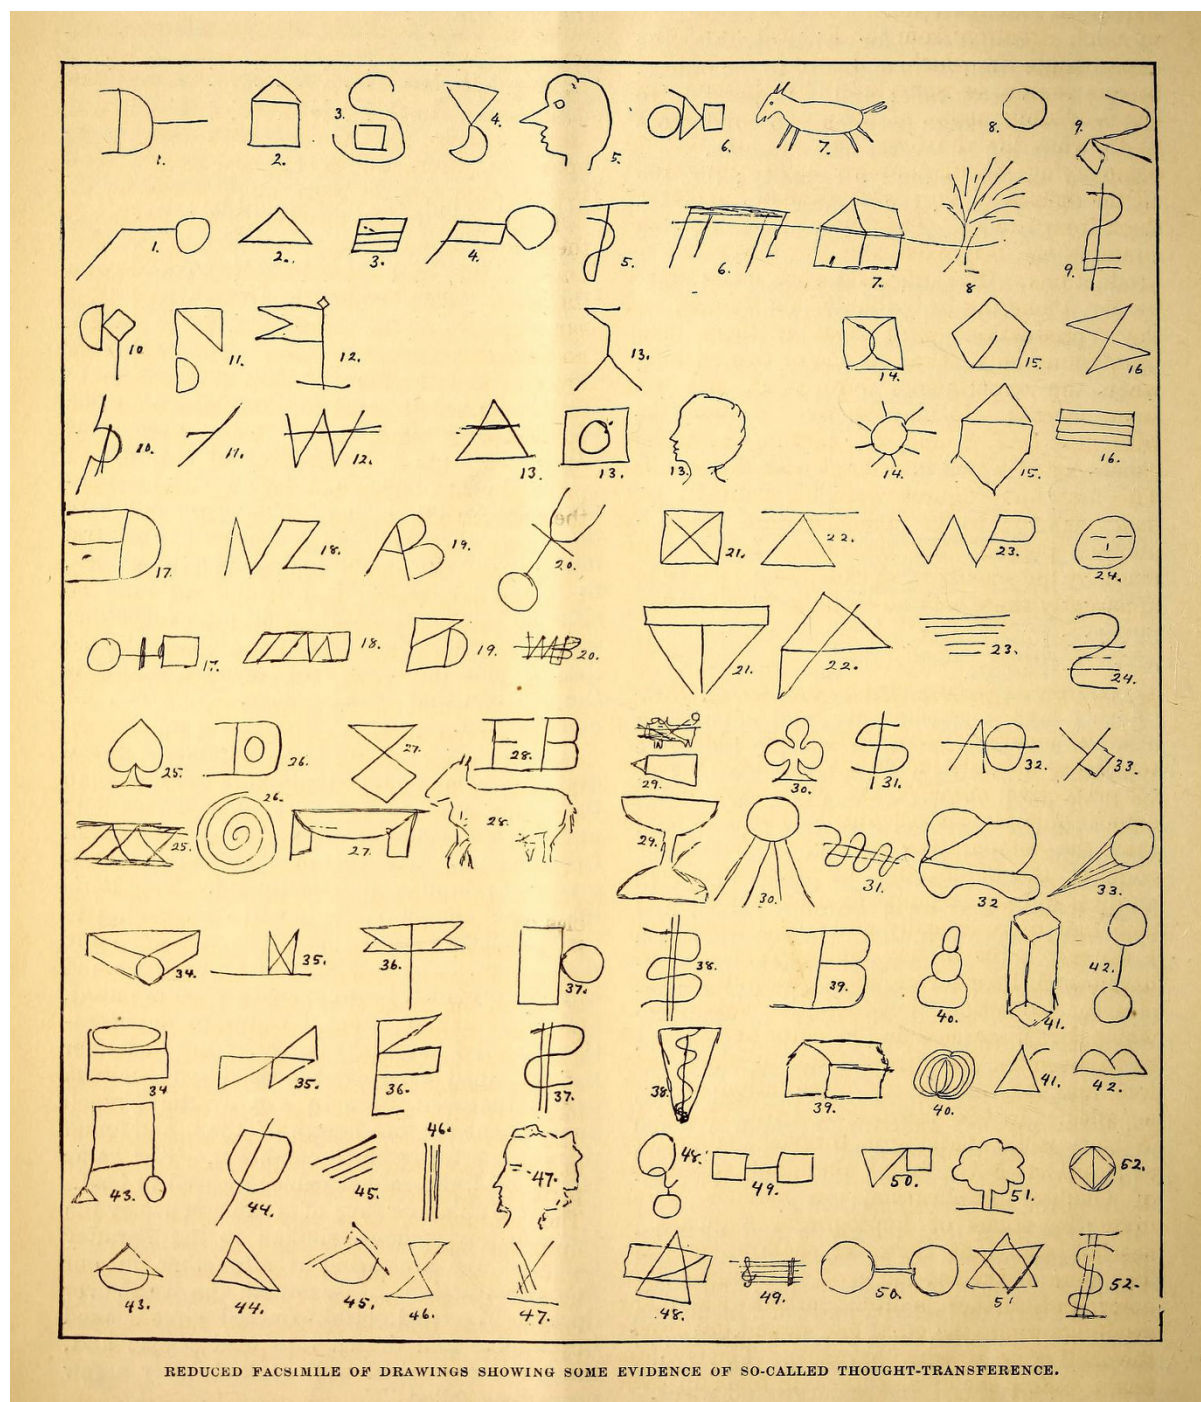 1. 2. 3. 4. 5. 6. 7. 8. 9.
1. 2. 3. 4. 5. 6. 7. 8 9.
10 11. 12. 13. 14. 15. 16
10. 11. 12. 13. 13. 13. 14. 15. 16.
17. NZ 18. AB 19. 20. 21. 22. WP 23. 24.
17. 18. 19. 20. 21. 22. 23. 24.
25. 26. 27. EB 28. 29. 30. $ 31. 32. 33.
25. 26. 27. 28. 29. 30. 31. 32 33.
34. 35. 36. 37. 38. B 39. 40. 41. 42.
34 35. 36. 37. 38. 39. 40. 41. 42.
43. 44. 45. 46. 47. 48. 49. 50. 51. 52.
43. 44. 45. 46. 47. 48. 49. 50. 51 52.
REDUCED FACSIMILE OF DRAWINGS SHOWING SOME EVIDENCE OF SO-CALLED THOUGHT-TRANSFERENCE.